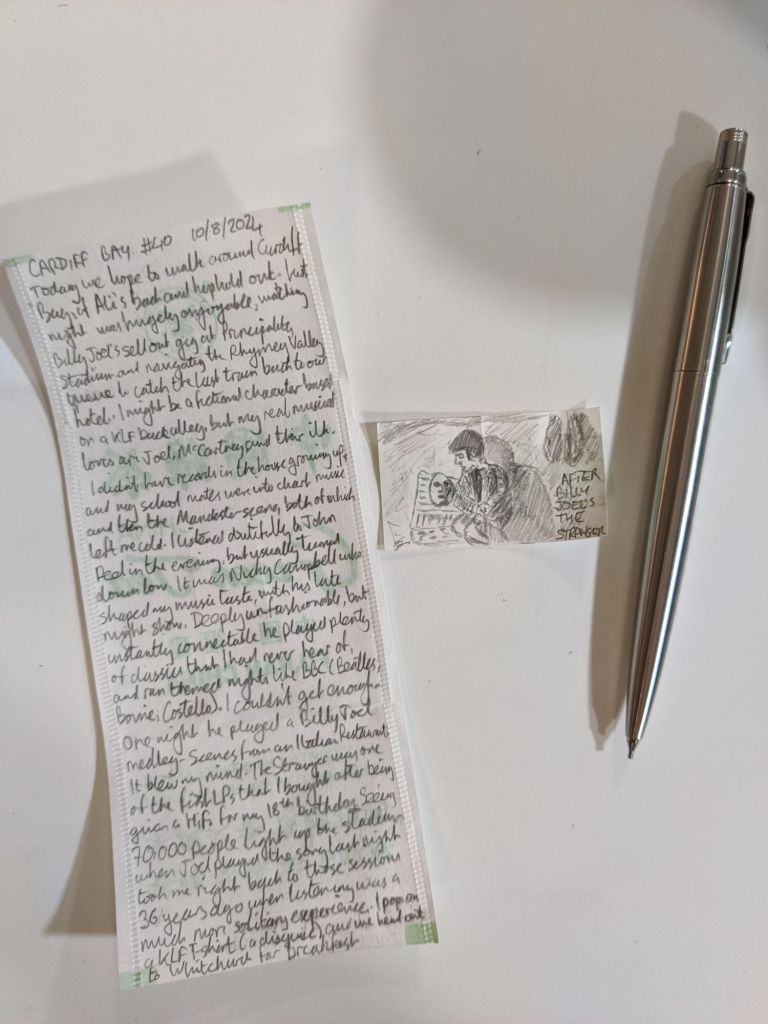 CARDIFF BAY #40 10/8/2024
Today we hope to walk around Cardiff
Bay, if Ali's back and hip hold out. Last
night was hugely enjoyable, watching
Billy Joel's sell out gig at Principality
Stadium and navigating the Rhymney Valley
queue to catch the last train back to our
hotel. I might be a fictional character based
on a KLF back alley, but my real musical
loves are Joel, McCartney and their ilk.
I didn't have records in the house growing up,
and my school mates were into chart music
and then the Manchester scene, both of which
left me cold. I listened dutifully to John
Peel in the evening, but usually turned
down low. It was Nicky Campbell who
shaped my music taste, with his late
night show. Deeply unfashionable, but
instantly connectable he played plenty
of classics that I had never hear of,
and ran themed nights like BBC (Beatles,
Bowie, Costello). I couldn't get enough.
One night he played a Billy Joel
medley - Scenes from an Italian Restaurant.
It blew my mind. The Stranger was one
of the first LPs that I bought after being
given a HiFi for my 18th birthday. Seeing
70,000 people light up the stadium
when Joel played the song last night
took me right back to those sessions
36 years ago when listening was a
much more solitary experience. I pop on
a KLF T-shirt (a disguise) and we head out
to Whitchurch for breakfast
AFTER
BILLY
JOEL'S
THE
STRANGER